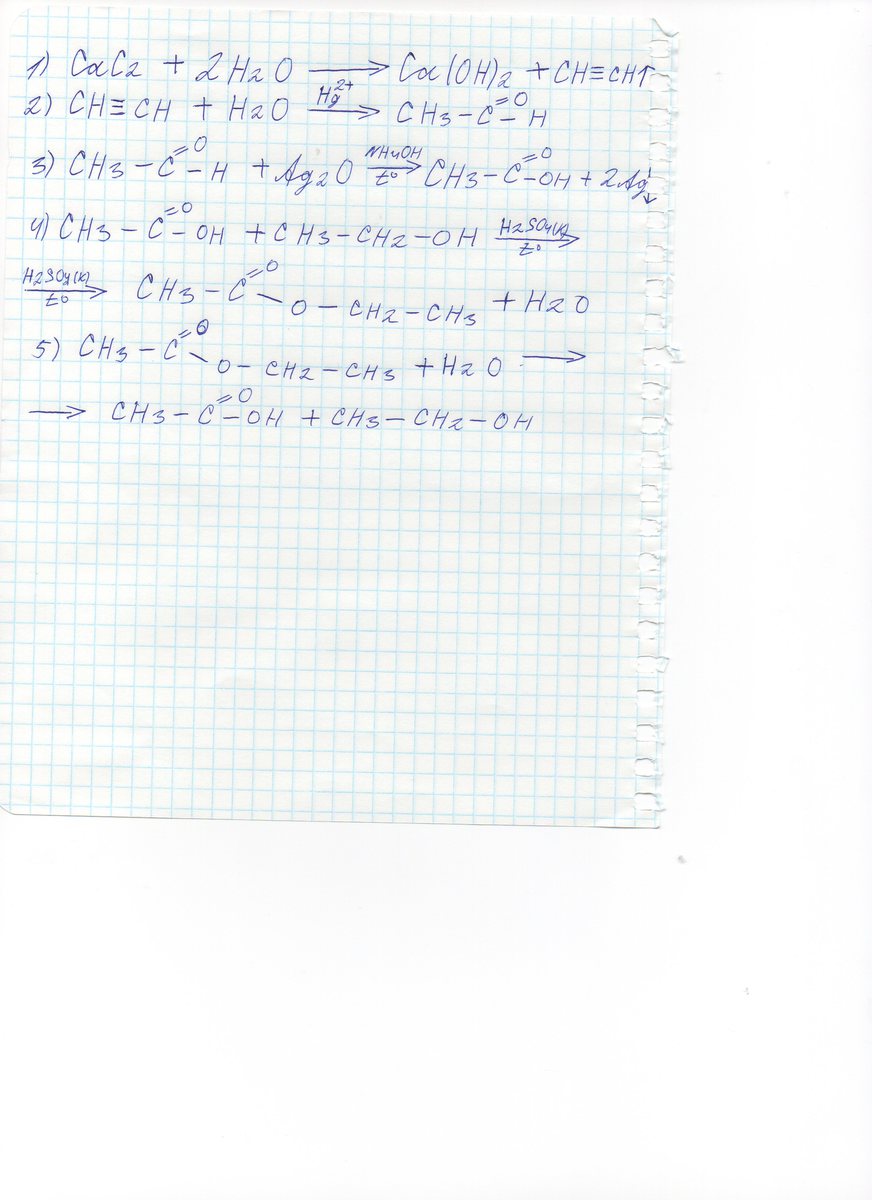 1) CaC2 + 2H2O ⟶ Ca(OH)2 + CH≡CH↑
2) CH≡CH + H2O —Hg2+→ CH3–C=O–H
3) CH3–C=O–H + Ag2O —NH4OH, t°→ CH3–C=O–OH + 2Ag↓
4) CH3–C=O–OH + CH3–CH2–OH —H2SO4(к), t°→
—H2SO4(к), t°→ CH3–C=O–O–CH2–CH3 + H2O
5) CH3–C=O–O–CH2–CH3 + H2O ⟶
⟶ CH3–C=O–OH + CH3–CH2–OH